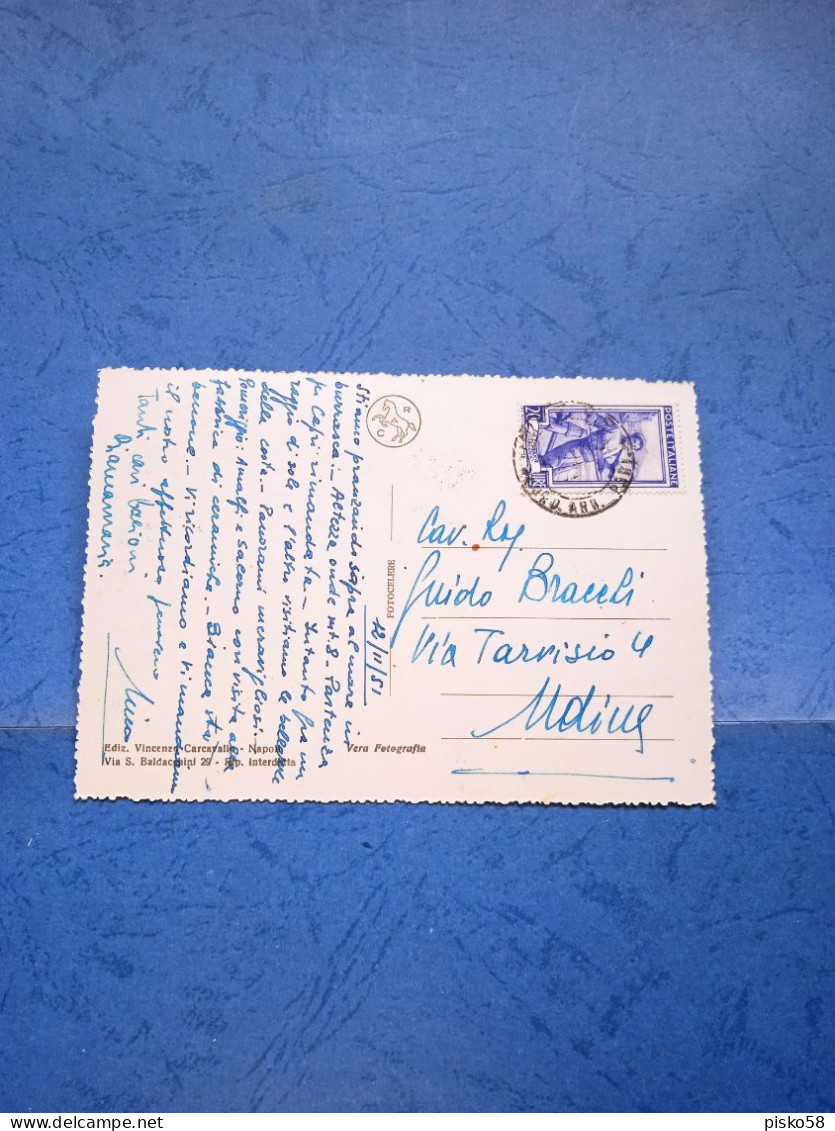 12/11/51
Stiamo pranzando sopra al mare in
burrasca. - Altezza onde mt. 8 - Partenza
per Capri rimandata - Intanto fra un
raggio di sole e l'altro visitiamo le bellezze
della costa. - Panorami meravigliosi -
Pomeriggio: Amalfi e Salerno con visita alla
fabbrica di ceramiche. -
benone - Vi ricordiamo e vi mandiamo
il nostro affettuoso pensiero
Tanti cari
Gianmaria.
R
C
FOTOCELERE
Ediz. Vincenzo Carcavallo - Napoli
Via S. Baldacchini 29 - Rip. Interdetta
Vera Fotografia
POSTE ITALIANE
LIRE
20
Cav. Rag
Guido Braceli
Via Tarvisio 4
Udine
pisko58